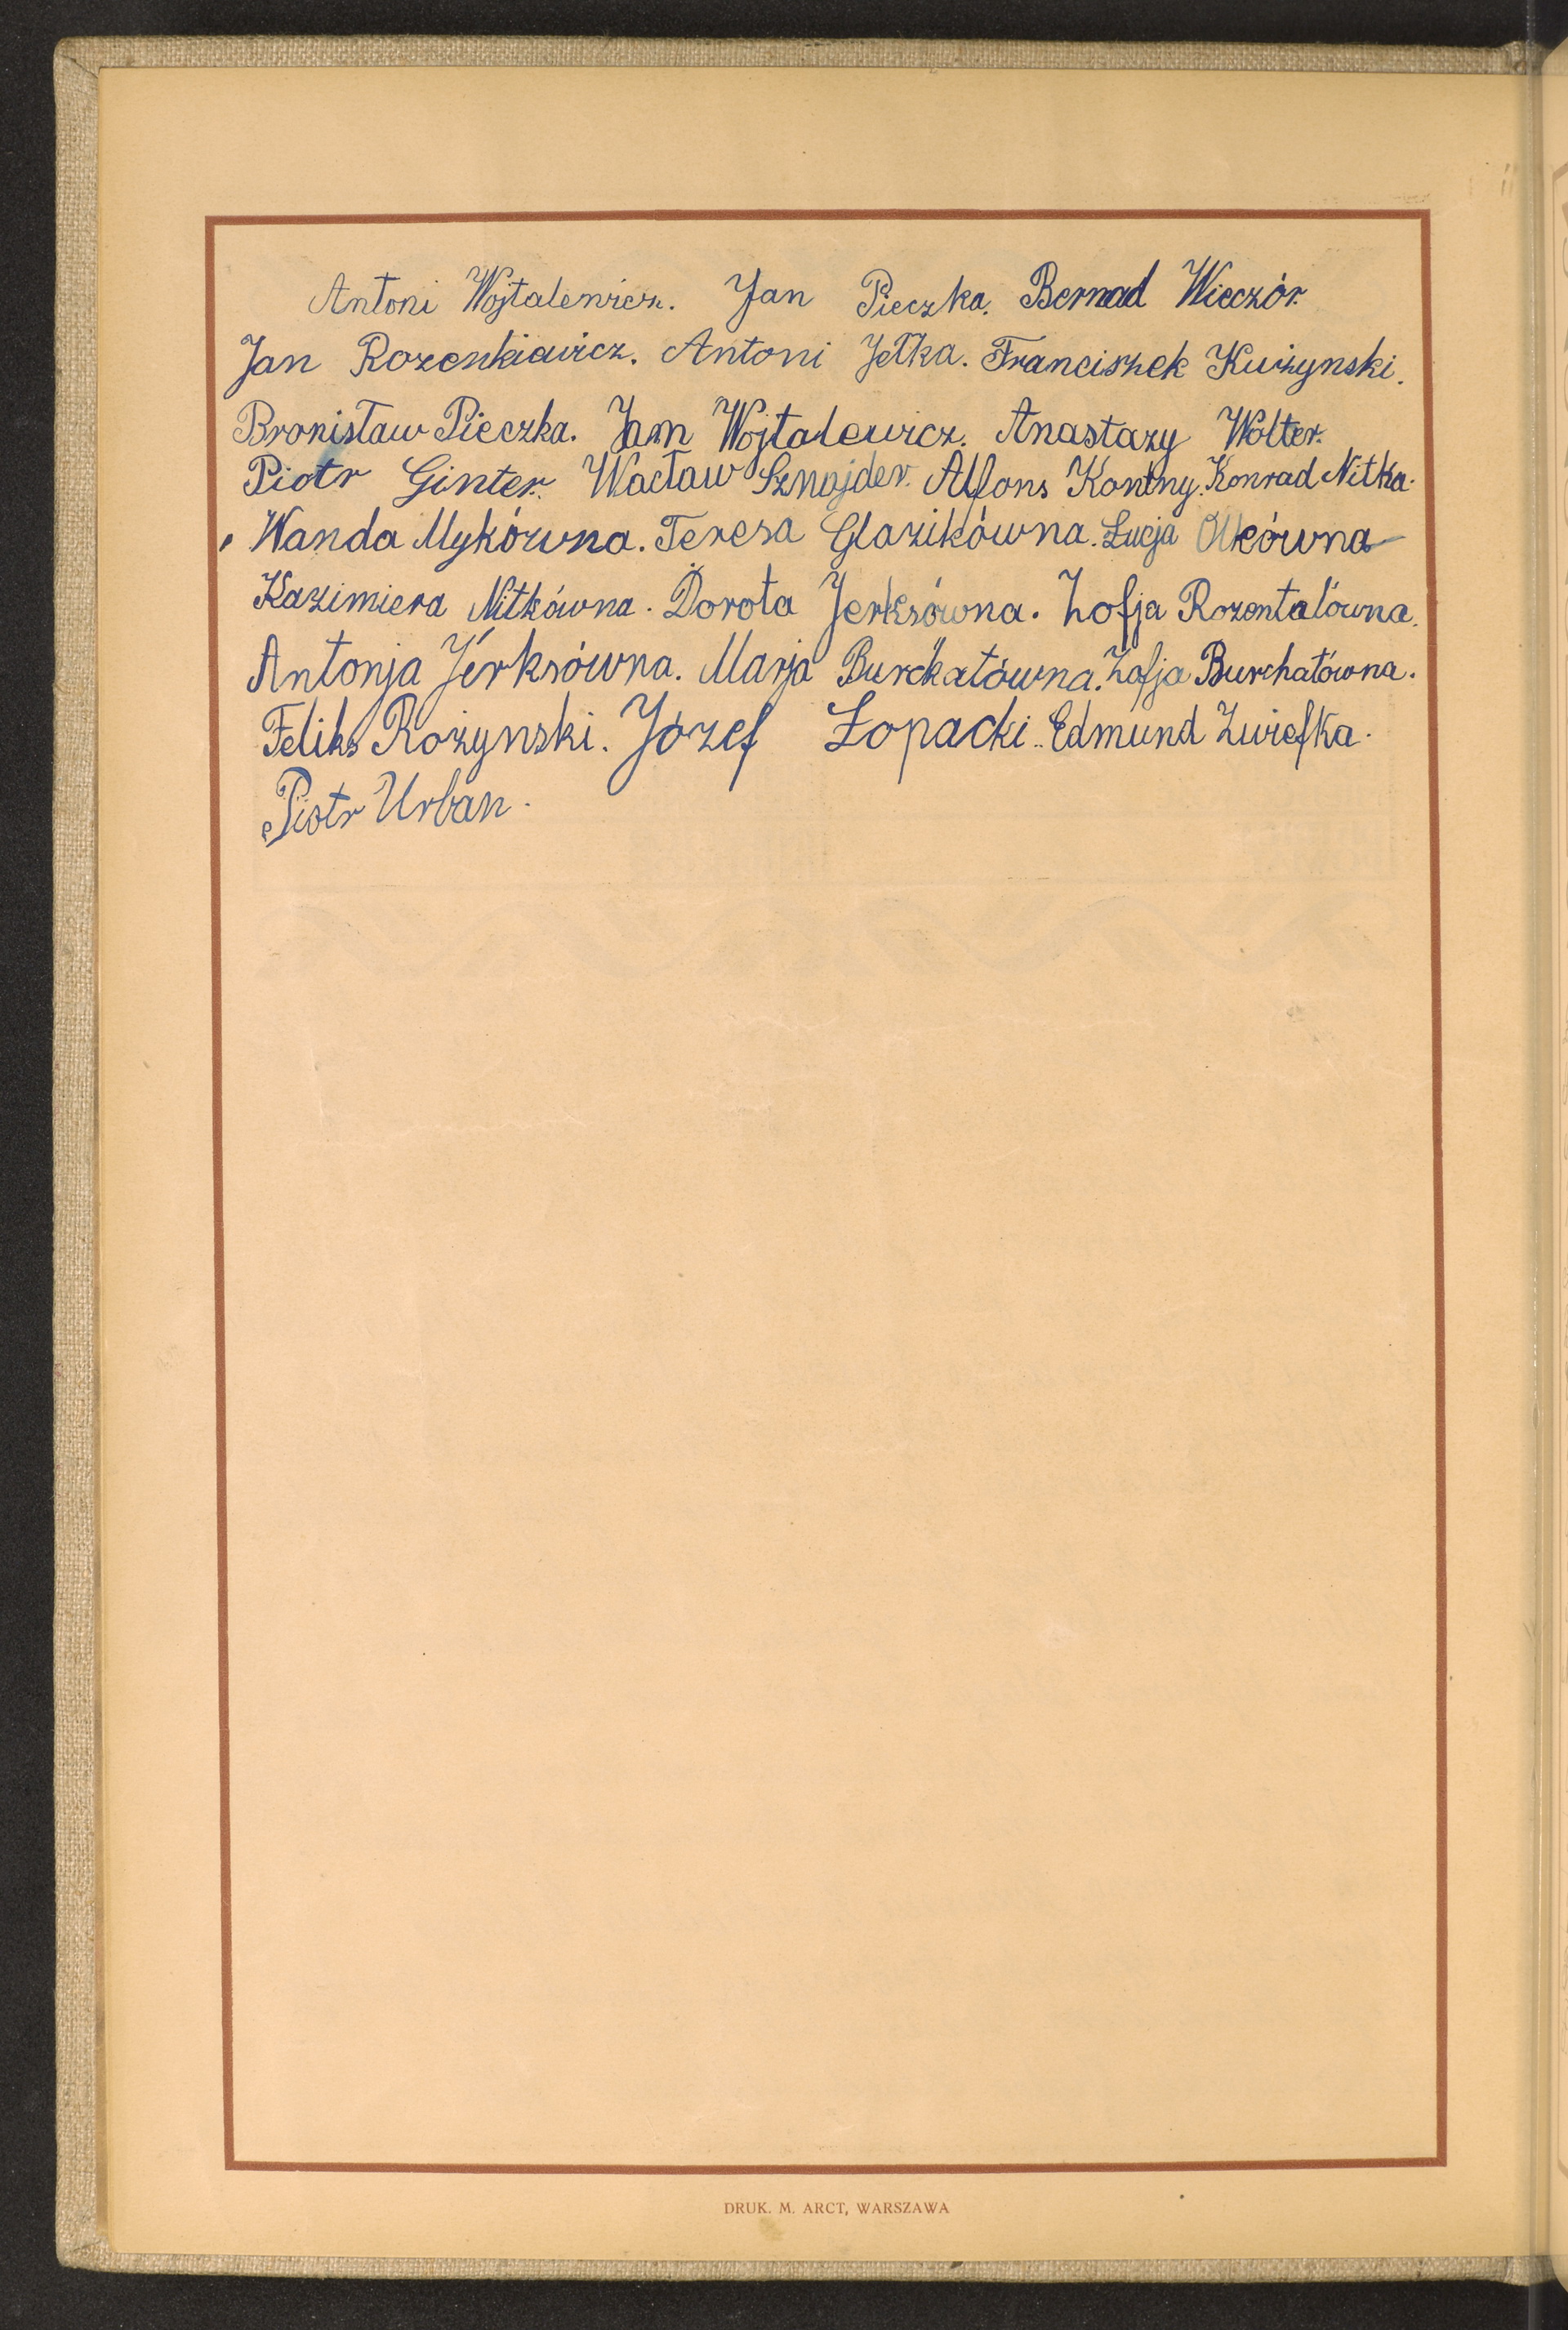 Antoni Wojtalewicz. Jan Pieczka. Bernad Wieczór.
Jan Rozenkiewicz. Antoni Jetka. Franciszek Kużynski.
Bronisław Pieczka. Jam Wojtalewicz. Anastazy Wolter.
Piotr Ginter. Wacław Sznajder. Alfons Kontny. Konrad Nitka.
Wanda Mykówna. Teresa Glazikówna. Łucja
Kazimiera Nitkówna. Dorota Jerksówna. Zofja Rozentalówna.
Antonja Jerksówna. Marja Burchatówna. Zofja Burchatówna.
Feliks Rożynski. Józef Łopacki. Edmund Żwiefka.
Piotr Urban.
DRUK. M. ARCT, WARSZAWA